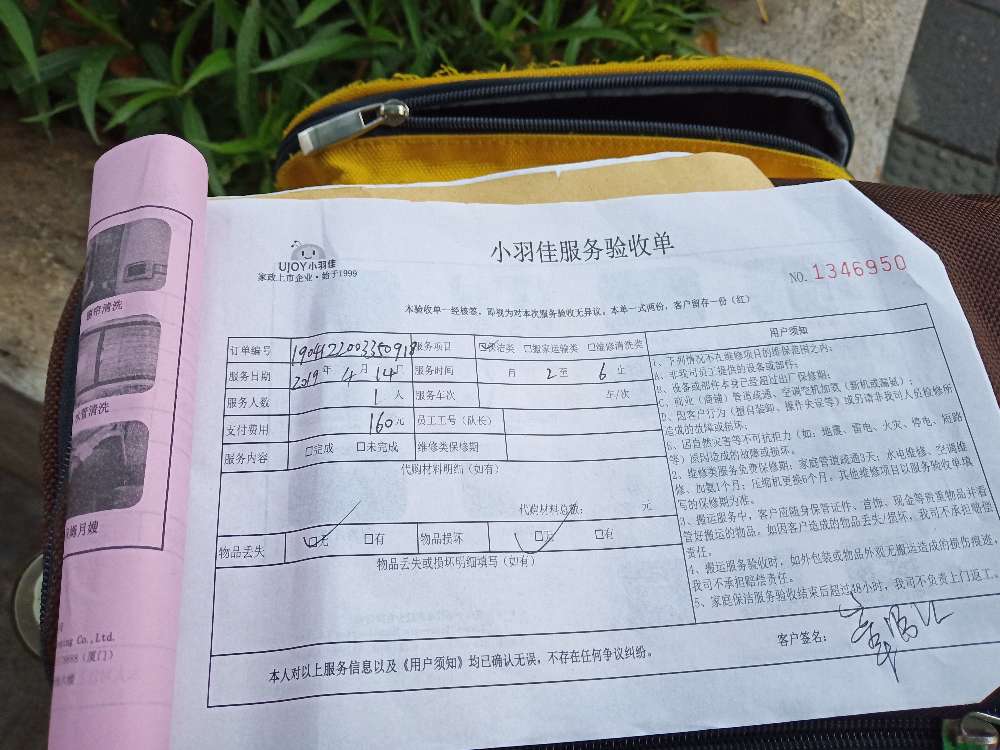 UJOY小羽佳
家政上市企业·始于1999
小羽佳服务验收单
NO. 1346950
本验收单一经核签，即视为对本次服务验收无异议。本单一式两份，客户留存一份（红）
订单编号 服务项目 保洁类 □搬家运输类 □维修清洗类
服务日期 2019年 4月 14日 服务时间 自 2 至 6 止
服务人数 1 人 服务车次 车/次
支付费用 160元 员工工号（队长）
服务内容 □完成 □未完成 维修类保修期
代购材料明细（如有）
代购材料总额： 元
物品丢失 ☑无 □有 物品损坏 ☑无 □有
物品丢失或损坏明细填写（如有）
用户须知
1、下列情况不在维修项目的维保范围之内：
A、非我司员工提供的设备或部件；
B、设备或部件本身已经超过出厂保修期；
造成的故障或损坏；
E、因自然灾害等不可抗拒力（如：地震、雷电、火灾、停电、短路
等）原因造成的故障或损坏。
2、维修类服务免费保修期：家庭管道疏通3天；水电维修、空调维
修、加氨1个月；压缩机更换6个月。其他维修项目以服务验收单填
写的保修期为准。
3、搬运服务中，客户应随身保管证件、首饰、现金等贵重物品并看
管好搬运的物品。如因客户造成的物品丢失/损坏，我司不承担赔偿
责任。
4、搬运服务验收时，如外包装或物品外观无搬运造成的损伤痕迹，
我司不承担赔偿责任。
5、家庭保洁服务验收结束后超过48小时，我司不负责上门返工。
客户签名：
本人对以上服务信息以及《用户须知》均已确认无误，不存在任何争议纠纷。
清洗
水管清洗
月嫂
Co.,Ltd.
（厦门）